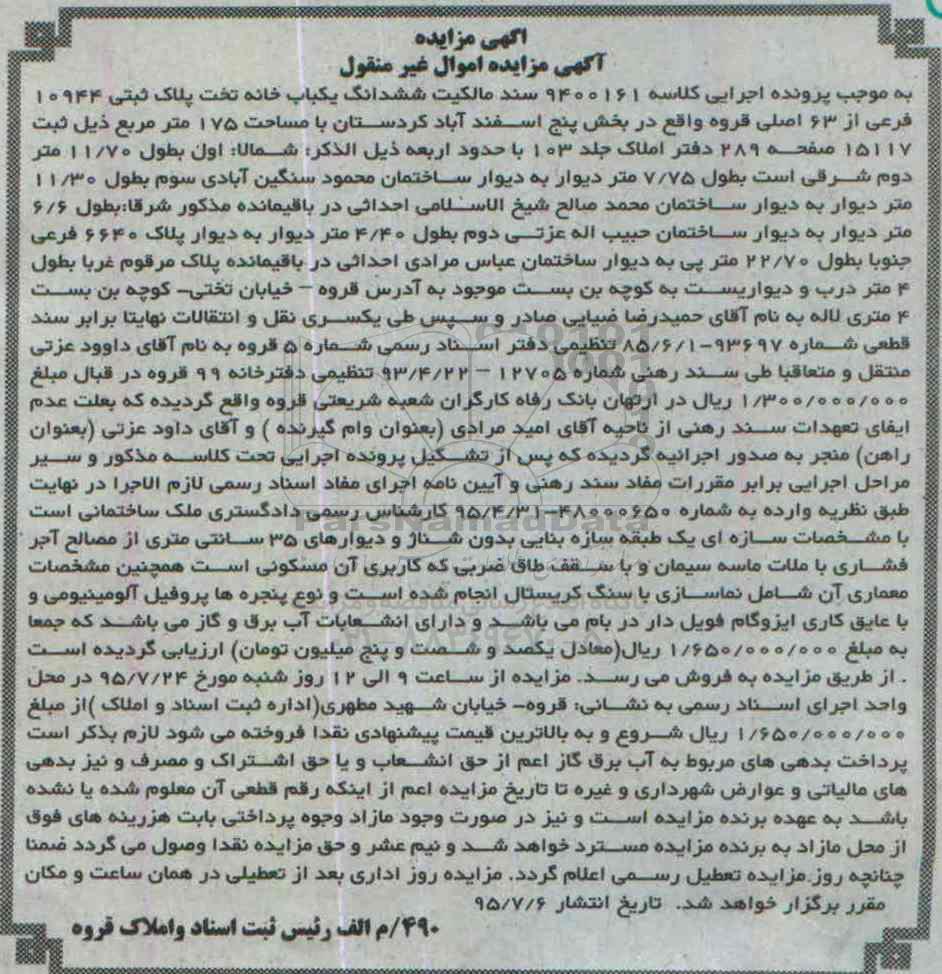 اگهی مزایده
آگهی مزایده اموال غیر منقول
به موجب پرونده اجرایی کلاسه ۹۴۰۰۱۶۱ سند مالکیت ششدانگ یکباب خانه تخت پلاک ثبتی ۱۰۹۴۴
فرعی از ۶۳ اصلی قروه واقع در بخش پنج اسفند آباد کردستان با مساحت ۱۷۵ متر مربع ذیل ثبت
۱۵۱۱۷ صفحه ۲۸۹ دفتر املاک جلد ۱۰۳ با حدود اربعه ذیل الذکر: شمالا: اول بطول ۱۱/۷۰ متر
دوم شرقی است بطول ۷/۷۵ متر دیوار به دیوار ساختمان محمود سنگین آبادی سوم بطول ۱۱/۳۰
متر دیوار به دیوار ساختمان محمد صالح شیخ الاسلامی احداثی در باقیمانده مذکور شرقا:بطول ۶/۶
متر دیوار به دیوار ساختمان حبیب اله عزتی دوم بطول ۴/۴۰ متر دیوار به دیوار پلاک ۶۶۴۰ فرعی
جنوبا بطول ۲۲/۷۰ متر پی به دیوار ساختمان عباس مرادی احداثی در باقیمانده پلاک مرقوم غربا بطول
۴ متر درب و دیواریست به کوچه بن بست موجود به آدرس قروه – خیابان تختی- کوچه بن بست
۴ متری لاله به نام آقای حمیدرضا ضیایی صادر و سپس طی یکسری نقل و انتقالات نهایتا برابر سند
قطعی شماره ۹۳۶۹۷-۸۵/۶/۱ تنظیمی دفتر اسناد رسمی شماره ۵ قروه به نام آقای داوود عزتی
منتقل و متعاقبا طی سند رهنی شماره ۱۲۷۰۵ – ۹۳/۴/۲۲ تنظیمی دفترخانه ۹۹ قروه در قبال مبلغ
۱/۳۰۰/۰۰۰/۰۰۰ ریال در ارتهان بانک رفاه کارگران شعبه شریعتی قروه واقع گردیده که بعلت عدم
ایفای تعهدات سند رهنی از ناحیه آقای امید مرادی (بعنوان وام گیرنده ) و آقای داود عزتی (بعنوان
راهن) منجر به صدور اجرائیه گردیده که پس از تشکیل پرونده اجرایی تحت کلاسه مذکور و سیر
مراحل اجرایی برابر مقررات مفاد سند رهنی و آیین نامه اجرای مفاد اسناد رسمی لازم الاجرا در نهایت
طبق نظریه وارده به شماره ۴۸۰۰۰۶۵۰-۹۵/۴/۳۱ کارشناس رسمی دادگستری ملک ساختمانی است
با مشخصات سازه ای یک طبقه سازه بنایی بدون شناژ و دیوارهای ۳۵ سانتی متری از مصالح آجر
فشاری با ملات ماسه سیمان و با سقف طاق ضربی که کاربری آن مسکونی است همچنین مشخصات
معماری آن شامل نماسازی با سنگ کریستال انجام شده است و نوع پنجره ها پروفیل آلومینیومی و
با عایق کاری ایزوگام فویل دار در بام می باشد و دارای انشعابات آب برق و گاز می باشد که جمعا
به مبلغ ۱/۶۵۰/۰۰۰/۰۰۰ ریال(معادل یکصد و شصت و پنج میلیون تومان) ارزیابی گردیده است
. از طریق مزایده به فروش می رسد. مزایده از ساعت ۹ الی ۱۲ روز شنبه مورخ ۹۵/۷/۲۴ در محل
واحد اجرای اسناد رسمی به نشانی: قروه- خیابان شهید مطهری(اداره ثبت اسناد و املاک )از مبلغ
۱/۶۵۰/۰۰۰/۰۰۰ ریال شروع و به بالاترین قیمت پیشنهادی نقدا فروخته می شود لازم بذکر است
پرداخت بدهی های مربوط به آب برق گاز اعم از حق انشعاب و یا حق اشتراک و مصرف و نیز بدهی
های مالیاتی و عوارض شهرداری و غیره تا تاریخ مزایده اعم از اینکه رقم قطعی آن معلوم شده یا نشده
باشد به عهده برنده مزایده است و نیز در صورت وجود مازاد وجوه پرداختی بابت هزرینه های فوق
از محل مازاد به برنده مزایده مسترد خواهد شد و نیم عشر و حق مزایده نقدا وصول می گردد ضمنا
چنانچه روز مزایده تعطیل رسمی اعلام گردد. مزایده روز اداری بعد از تعطیلی در همان ساعت و مکان
مقرر برگزار خواهد شد. تاریخ انتشار ۹۵/۷/۶
۴۹۰/م الف رئیس ثبت اسناد واملاک قروه
ParsNamadData